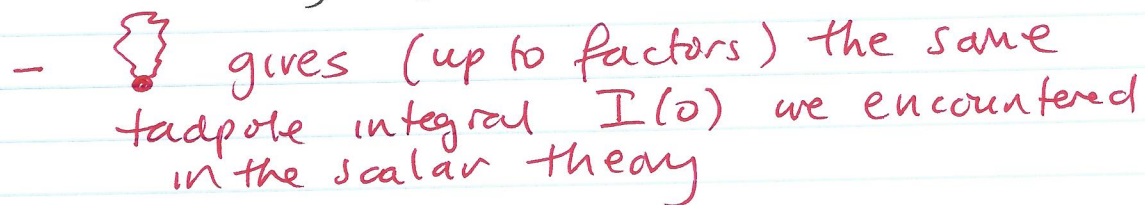 - gives (up to factors) the same
tadpole integral I(0) we encountered
in the scalar theory